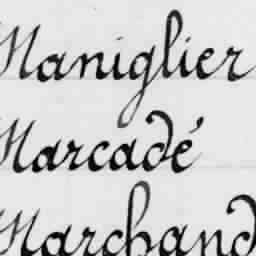 Maniglier
Marcadé
Marchand